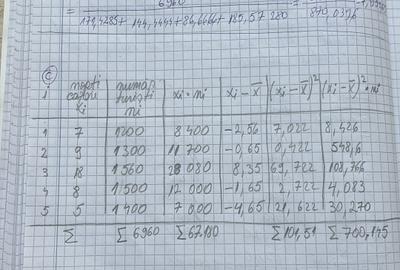 6960
179,4285+ 144,4444+86,6666+185,57 280
c)
i nopți cazări xi număr turiști ni xi · ni xi - x̄ (xi - x̄)² (xi - x̄)² · ni
1 7 1200 8 400 -2,56 7,022 8,426
2 9 1300 11 700 -0,65 0,422 548,6
3 18 1560 28 080 8,35 69,722 108,766
4 8 1500 12 000 -1,65 2,722 4,083
5 5 1400 7 000 -4,65 21,622 30,270
Σ Σ 6960 Σ 67.180 Σ 101,51 Σ 700,145